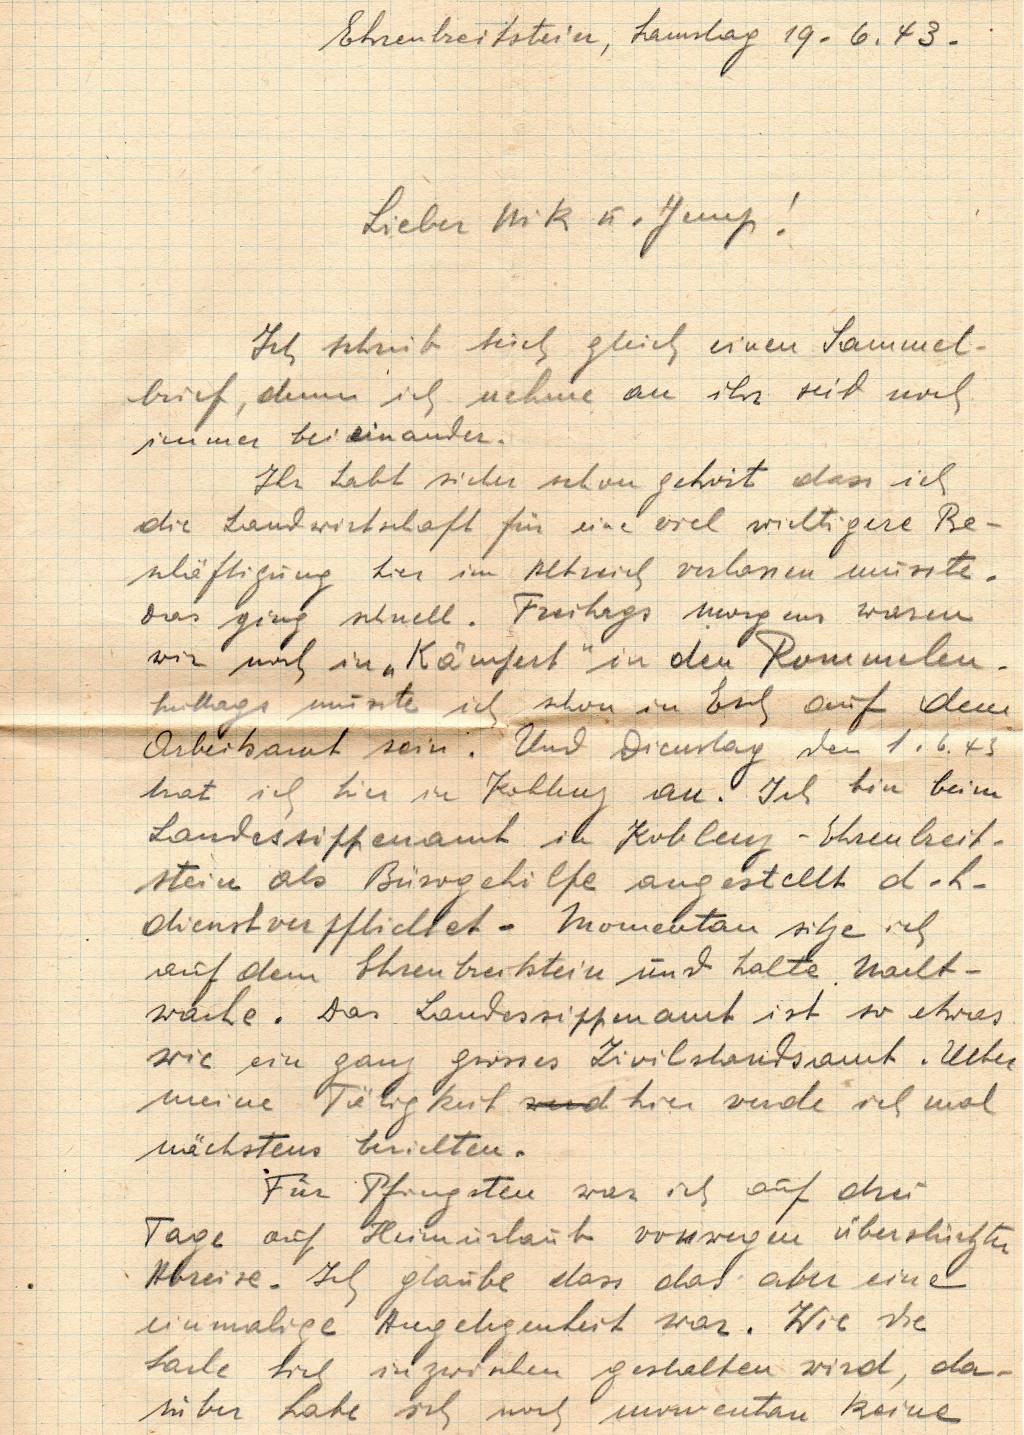 Ehrenbreitstein, Samstag 19. 6. 43.
Lieber Nik u. Jemp!
Ich schreib euch gleich einen Sammel-
brief, denn ich nehme an ihr seid noch
immer beieinander.
Ihr habt sicher schon gehört dass ich
die Landwirtschaft für eine viel wichtigere Be-
schäftigung hier im Altreich verlassen musste.
Das ging schnell. Freitags morgens waren
wir noch in „Kämfert" in den Rommelen.
Mittags musste ich schon in Esch auf dem
Arbeitsamt sein. Und Dienstag den 1. 6. 43
trat ich hier in Koblenz an. Ich bin beim
Landessippenamt in Koblenz-Ehrenbreit-
stein als Bürogehilfe angestellt d.h.
dienstverpflichtet. Momentan sitze ich
auf dem Ehrenbreitstein und halte Nacht-
wache. Das Landessippenamt ist so etwas
wie ein ganz grosses Zivilstandsamt. Ueber
meine Tätigkeit hier werde ich mal
nächstens berichten.
Für Pfingsten war ich auf drei
Tage auf Heimurlaub vonwegen überstürzter
Abreise. Ich glaube dass das aber eine
einmalige Angelegenheit war. Wie die
Sache sich inzwischen gestalten wird, da-
rüber habe ich noch momentan keine